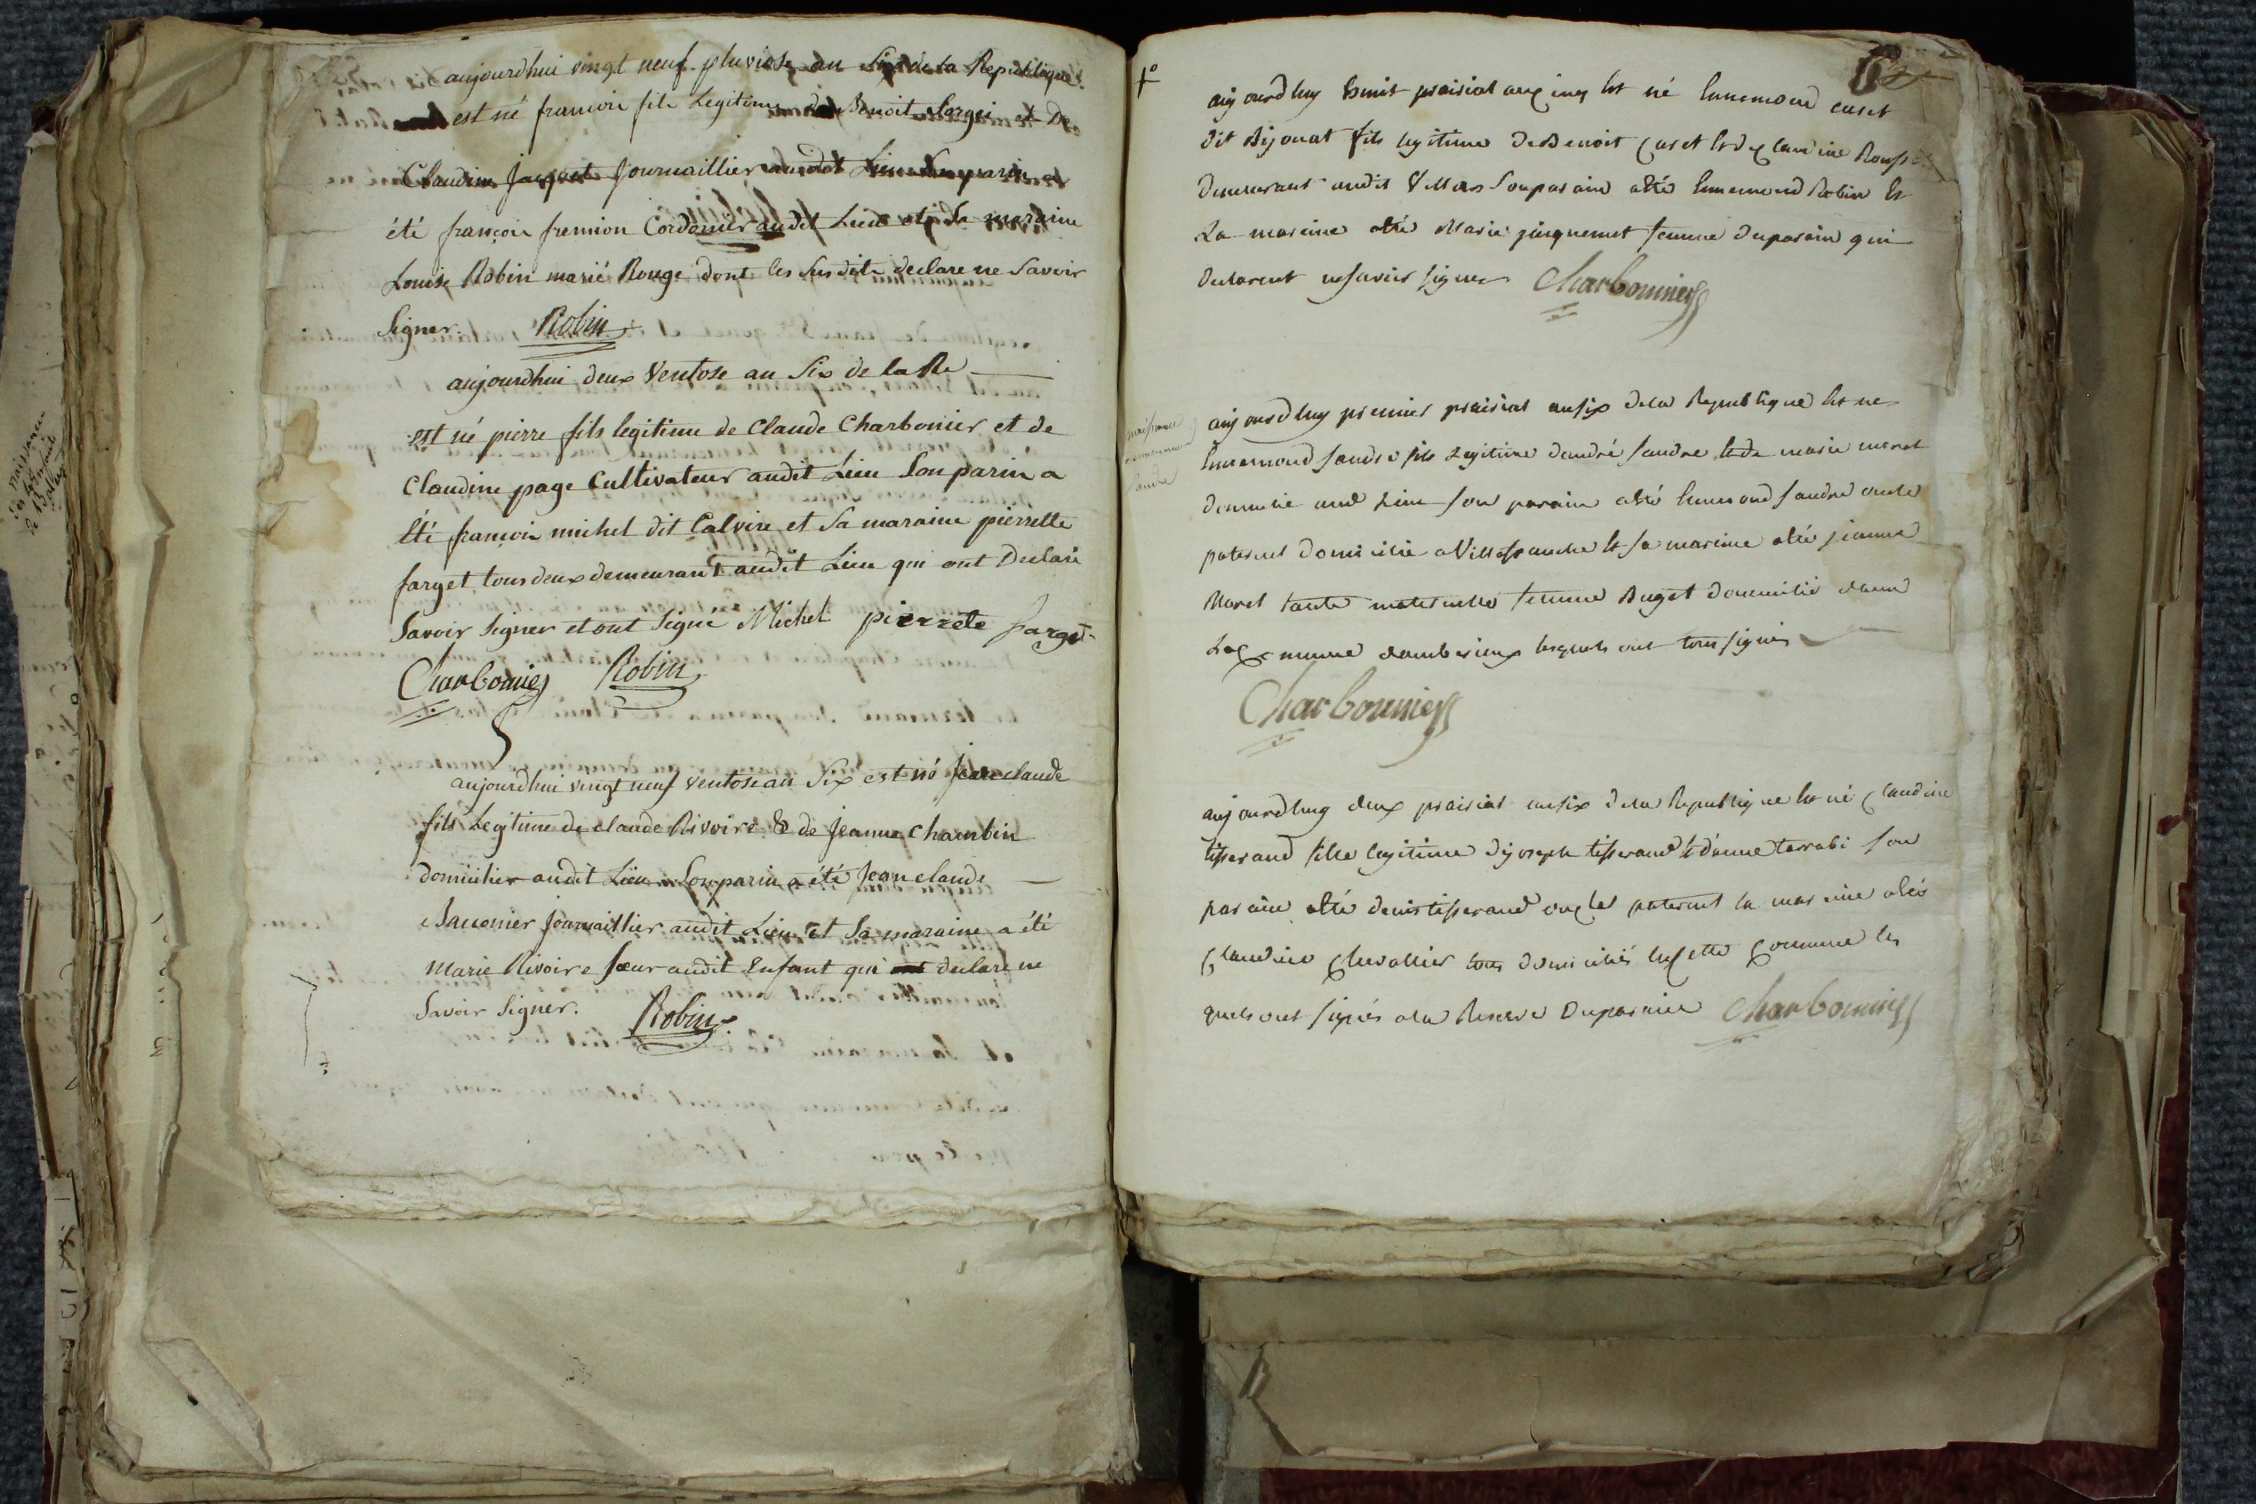 aujourdhui vingt neuf pluviose an Six de la Republique
est né francois fils Legitime de Benoit et De
Claudine Jaquet Journaillier audit Lieu Son parin a
été françois fremion Cordonier audit Lieu et Sa maraine
Louise Robin marié Rouge dont les Susdits declare ne Savoir
Signer. Robin
aujourdhui deux Ventose an Six de la Re
est né pierre fils legitime de Claude Charbonier et de
Claudine page Cultivateur audit Lieu Son parin a
été francois michel dit Calvire et Sa maraine pierrette
farget tous deux demeurant audit Lieu qui ont Declaré
Savoir Signer et ont Signé Michel pierrete farget
Charbonnier Robin
aujourdhui vingt neuf ventose an Six est né Jean claude
fils Legitime de claude Rivoire & de Jeanne Chambin
domicilier audit Lieu Son parin a été Jean claude
Journaillier audit Lieu et Sa maraine a été
Marie Rivoire Sœur audit Enfant qui ont declare ne
Savoir Signer. Robin
fº
aujourdhuy prairial an cinq Est né Ennemond cuset
dit Bijouat fils legitime de Benoit Cuset Et de Claudine
demeurant audit Villars Son parain a été Ennemond Robin Et
La mareine a été Marie jucquemet femme du parain qui
declarent ne savoir signer Charbonnier
aujourdhuy premier prairial an six de la Republique Est né
Ennemond sandre fils Legitime dandré sandre Et de marie morel
domicilié aud Lieu son parain a été Ennemond sandre oncle
paternel domicilié a Villefranche Et sa mareine a été jeanne
Morel tante maternelle femme Buget domicilié dans
La Commune dambérieux lesquels ont tous signés
Charbonnier
aujourdhuy deux prairial an six de la Republique Est né Claudine
tisserand fille legitime de joseph tisserand Et danne terrabi son
parain a été denis tisserand oncle paternel la mareine a été
Claudine Chevallier tous domiciliés En cette Commune les
quels ont signés a la Reserve Du parain Charbonnier